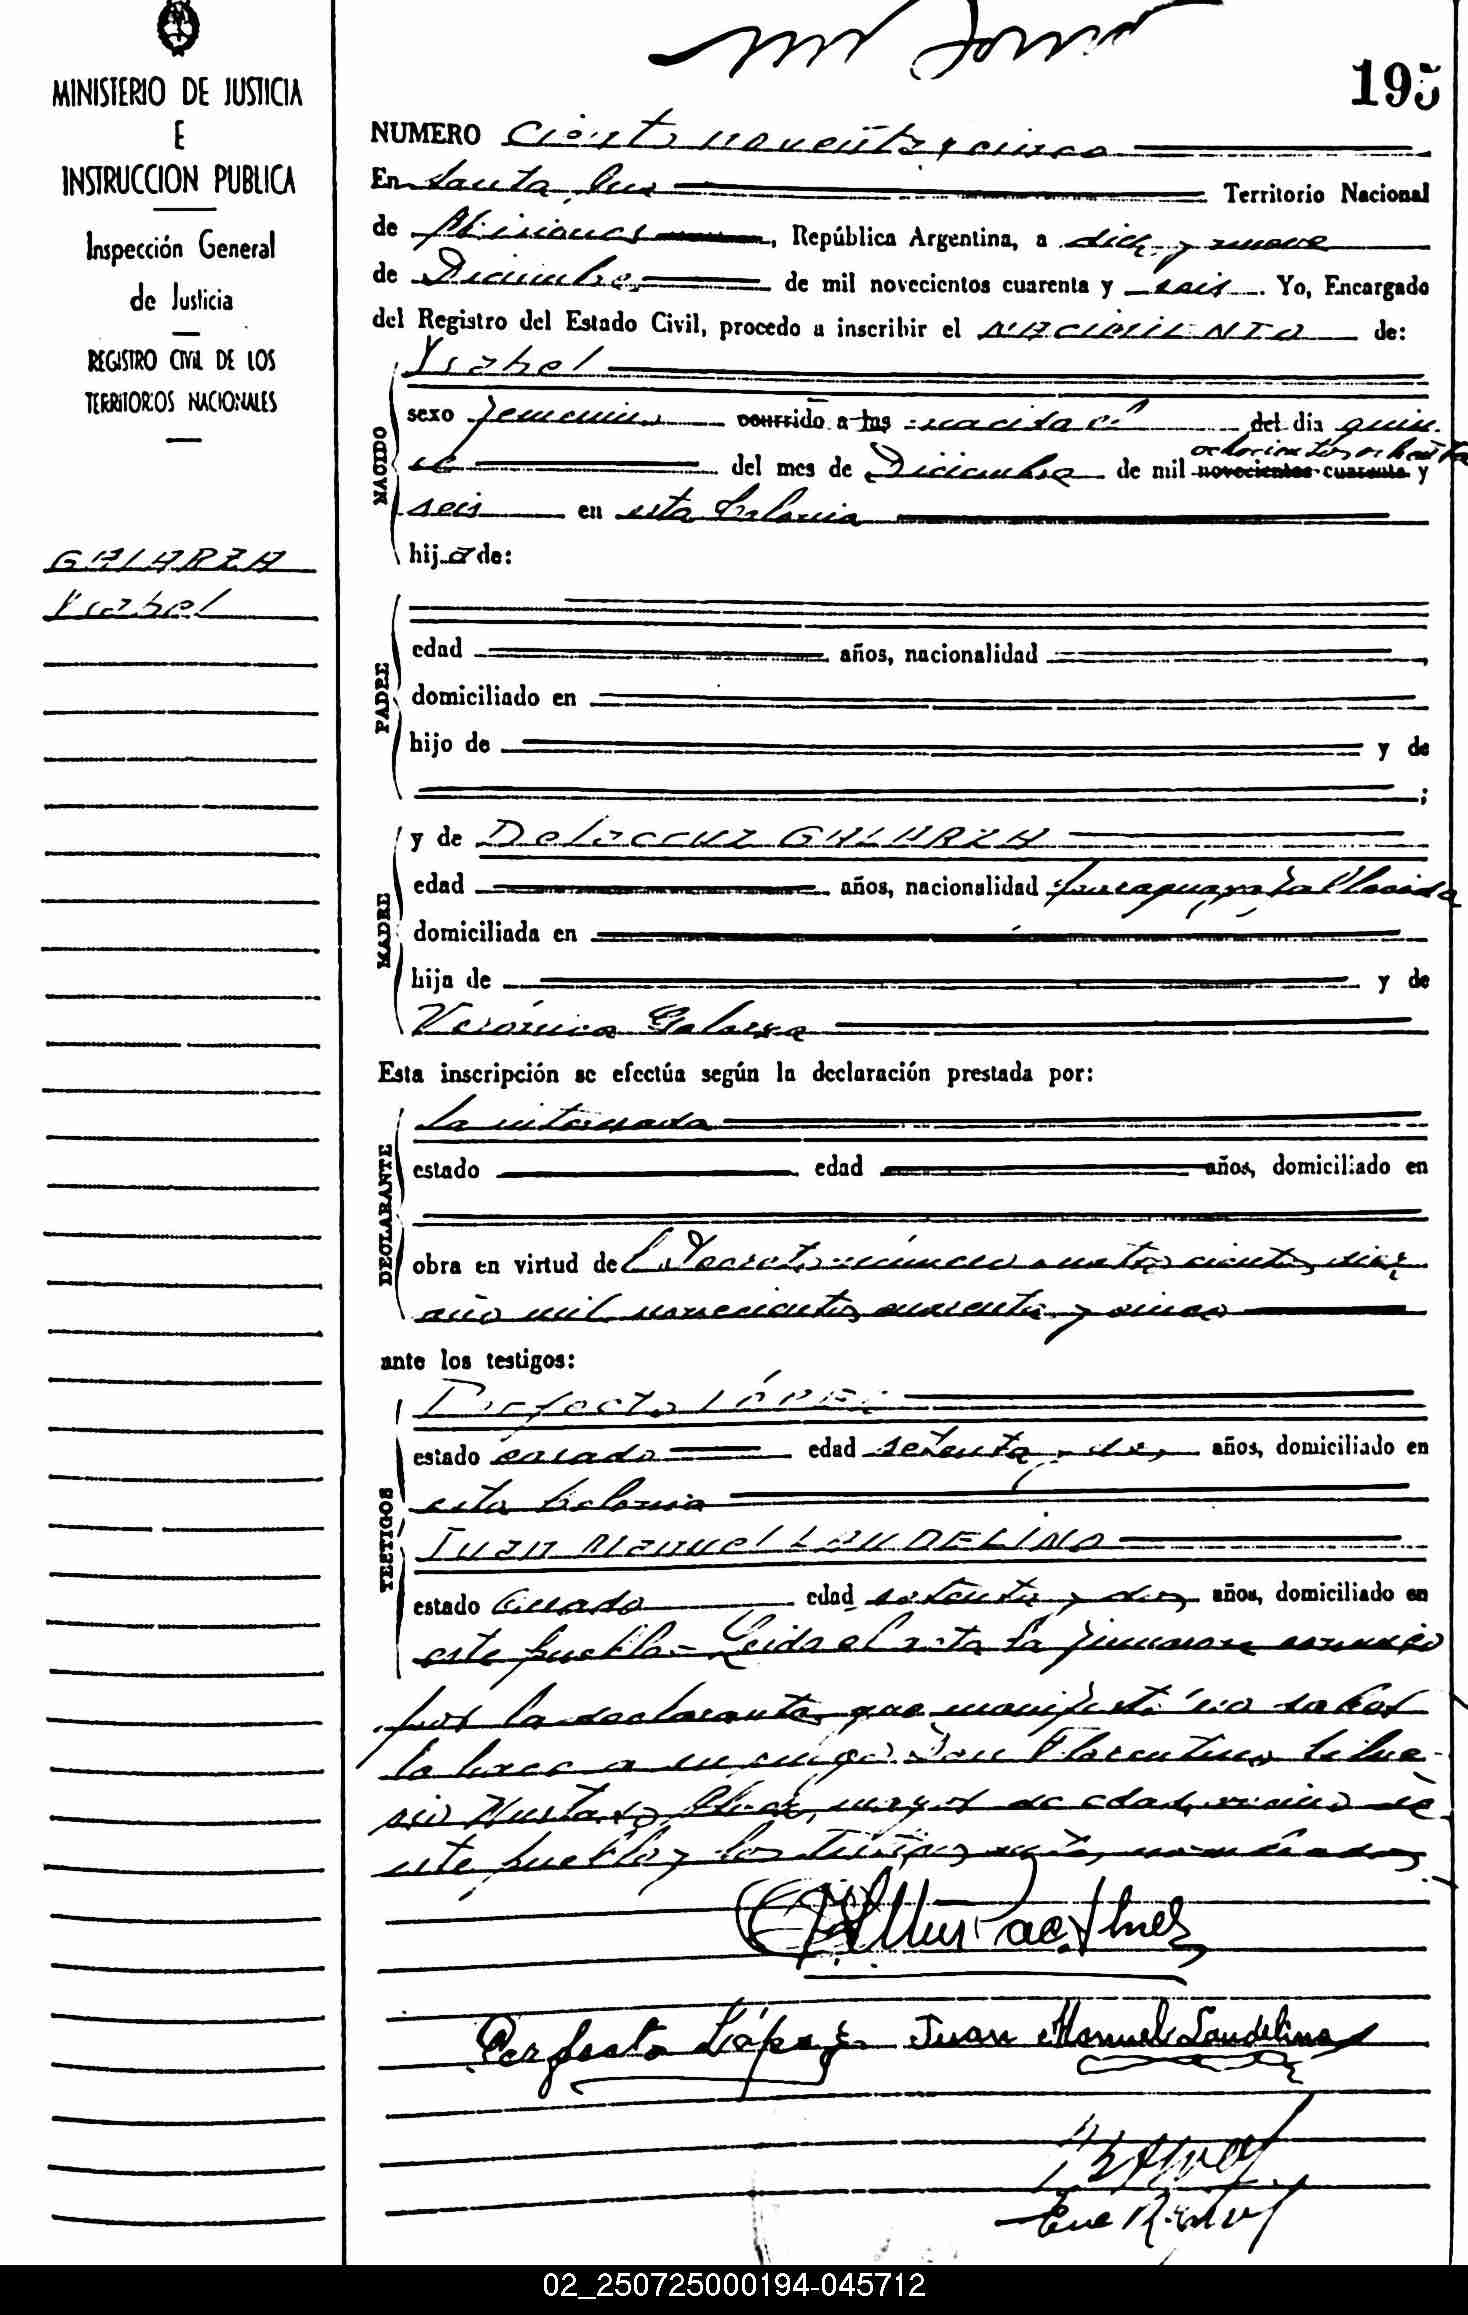 195
MINISTERIO DE JUSTICIA
E
INSTRUCCION PUBLICA
Inspección General
de Justicia
REGISTRO CIVIL DE LOS
TERRITORIOS NACIONALES
GALARZA
Ysabel
NUMERO Ciento noventa y cinco
En Santa Ana Territorio Nacional
de Misiones, República Argentina, a diez y nueve
de Diciembre de mil novecientos cuarenta y seis. Yo, Encargado
del Registro del Estado Civil, procedo a inscribir el NACIMIENTO de:
NACIDO
Ysabel
sexo femenino ocurrido a las nacida el del dia quin
ce del mes de Diciembre de mil ochocientos ochenta novecientos cuarenta y
seis en esta Colonia
hija de:
PADRE
edad años, nacionalidad
domiciliado en
hijo de y de
;
MADRE
y de Delacruz GALARZA
edad años, nacionalidad paraguaya fallecida
domiciliada en
hija de y de
Verónica Galarza
Esta inscripción se efectúa según la declaración prestada por:
DECLARANTE
La interesada
estado edad años, domiciliado en
obra en virtud del Decreto número cuatro ciento diez
año mil novecientos cuarenta y cinco
ante los testigos:
TESTIGOS
Perfecto LÓPEZ
estado casado edad setenta y dos años, domiciliado en
esta Colonia
Juan Manuel LAUDELINO
estado Casado edad setenta y dos años, domiciliado en
este pueblo.- Leida el acta la firmaron conmigo
por la declarante que manifestó no saber
lo hace a su ruego Don Florentino
mayor de edad, vecino de
este pueblo y los testigos nombrados
Perfecto López Juan Manuel Laudelino
Enc R.
02_250725000194-045712